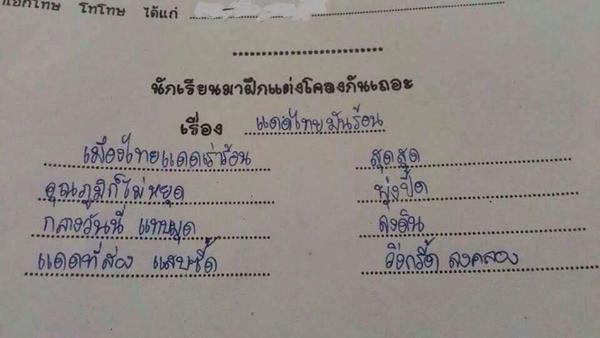 เอกโทษ โทโทษ ได้แก่
นักเรียนมาฝึกแต่งโคลงกันเถอะ
เรื่อง แดดไทยมันร้อน
เมืองไทยแดดเร่าร้อน สุดสุด
อุณภูมิก็ไม่หยุด พุ่งปี๊ด
กลางวันนี่ แทบมุด ลงดิน
แดดที่ส่อง แสบซี้ด วิ่งกรี๊ด ลงคลอง